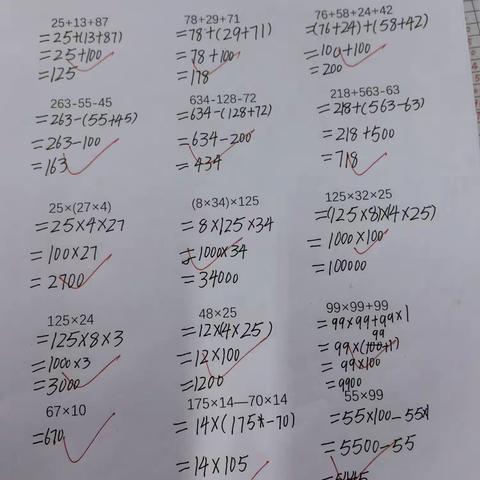 25+13+87
=25+(13+87)
=25+100
=125
78+29+71
=78+(29+71)
=78+100
=178
76+58+24+42
=(76+24)+(58+42)
=100+100
=200
263-55-45
=263-(55+45)
=263-100
=163
634-128-72
=634-(128+72)
=634-200
=434
218+563-63
=218+(563-63)
=218+500
=718
25×(27×4)
=25×4×27
=100×27
=2700
(8×34)×125
=8×125×34
=1000×34
=34000
125×32×25
=(125×8)×(4×25)
=1000×100
=100000
125×24
=125×8×3
=1000×3
=3000
48×25
=12×(4×25)
=12×100
=1200
99×99+99
=99×99+99×1
=99×(99+1)
=99×100
=9900
67×10
=670
175×14—70×14
=14×(175-70)
=14×105
55×99
=55×100-55×1
=5500-55
=5445